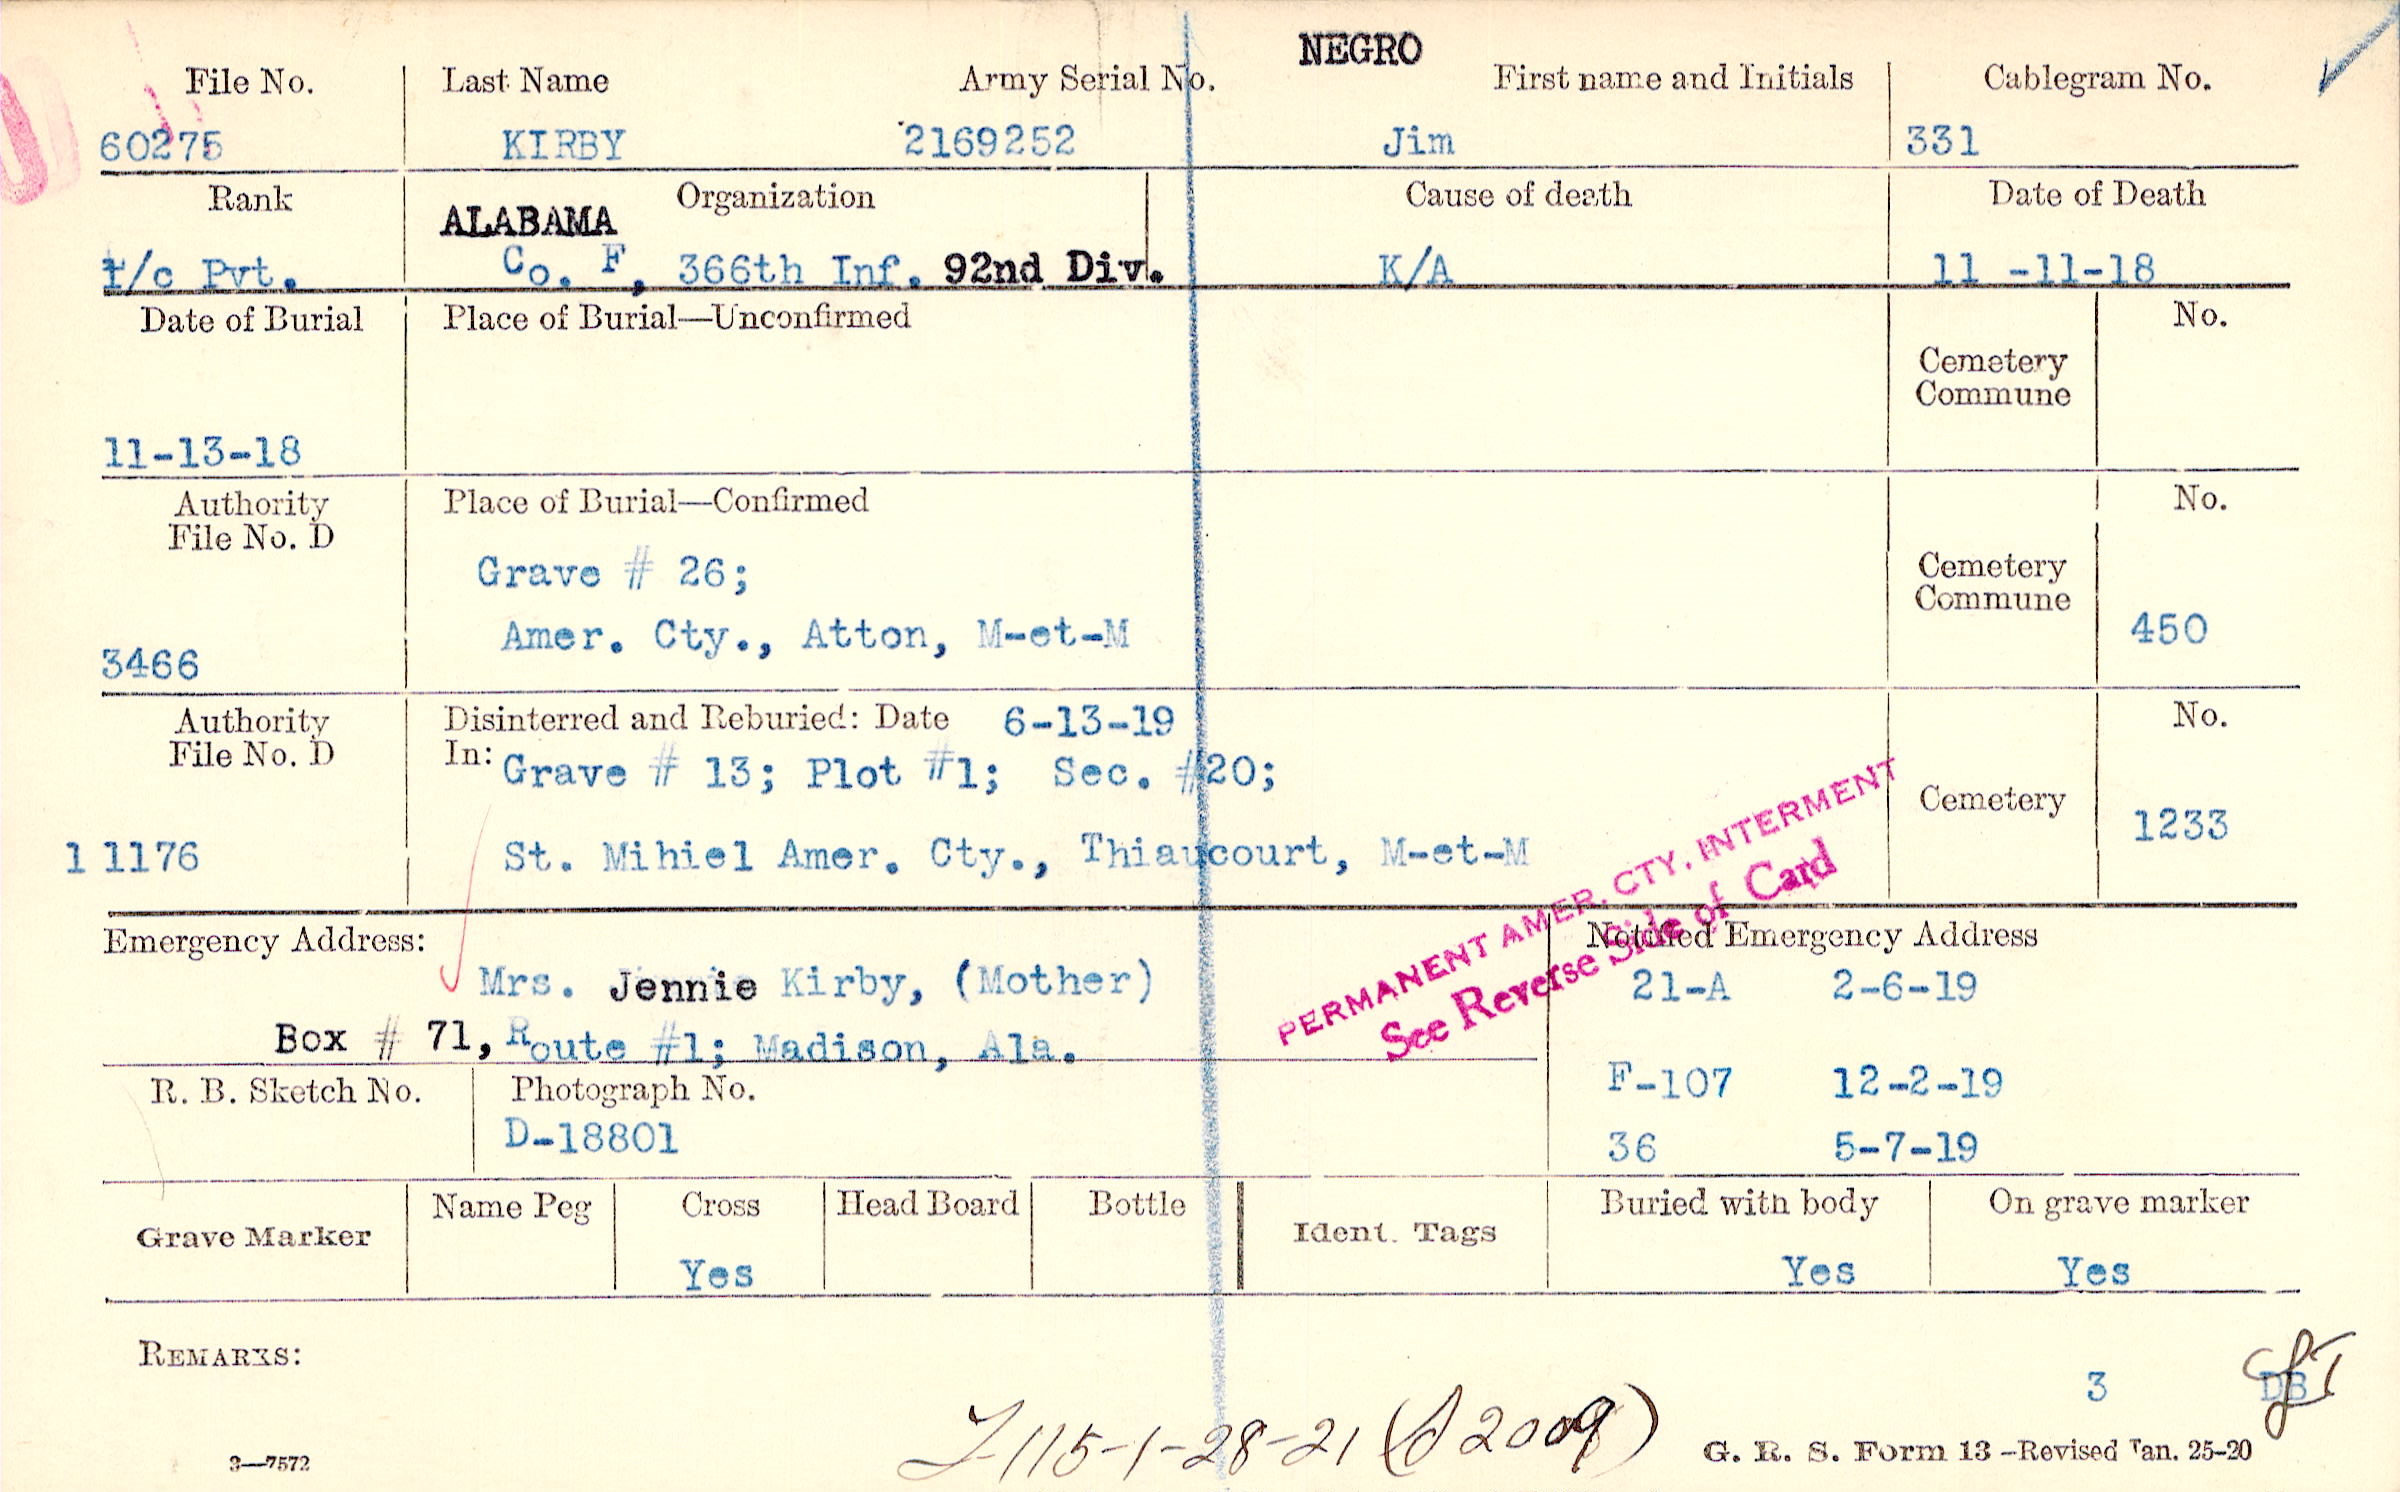 NEGRO
File No. Last Name Army Serial No. First name and Initials Cablegram No.
60275 KIRBY 2169252 Jim 331
Rank Organization Cause of death Date of Death
ALABAMA
1/c Pvt. Co. F, 366th Inf. 92nd Div. K/A 11 -11-18
Date of Burial Place of Burial—Unconfirmed No.
Cemetery
Commune
11-13-18
Authority Place of Burial—Confirmed No.
File No. D
Grave # 26; Cemetery
Commune
Amer. Cty., Atton, M-et-M 450
3466
Authority Disinterred and Reburied: Date 6-13-19 No.
File No. D In: Grave # 13; Plot #1; Sec. #20;
Cemetery
1233
1 1176 St. Mihiel Amer. Cty., Thiaucourt, M-et-M
PERMANENT AMER. CTY. INTERMENT
See Reverse Side of Card
Emergency Address: Notified Emergency Address
Mrs. Jennie Kirby, (Mother) 21-A 2-6-19
Box # 71, Route #1; Madison, Ala.
R. B. Sketch No. Photograph No. F-107 12-2-19
D-18801 36 5-7-19
Grave Marker Name Peg Cross Head Board Bottle Ident. Tags Buried with body On grave marker
Yes Yes Yes
REMARKS:
3 DB
115-1-28-21
3—7572 G. R. S. Form 13 -Revised Jan. 25-20